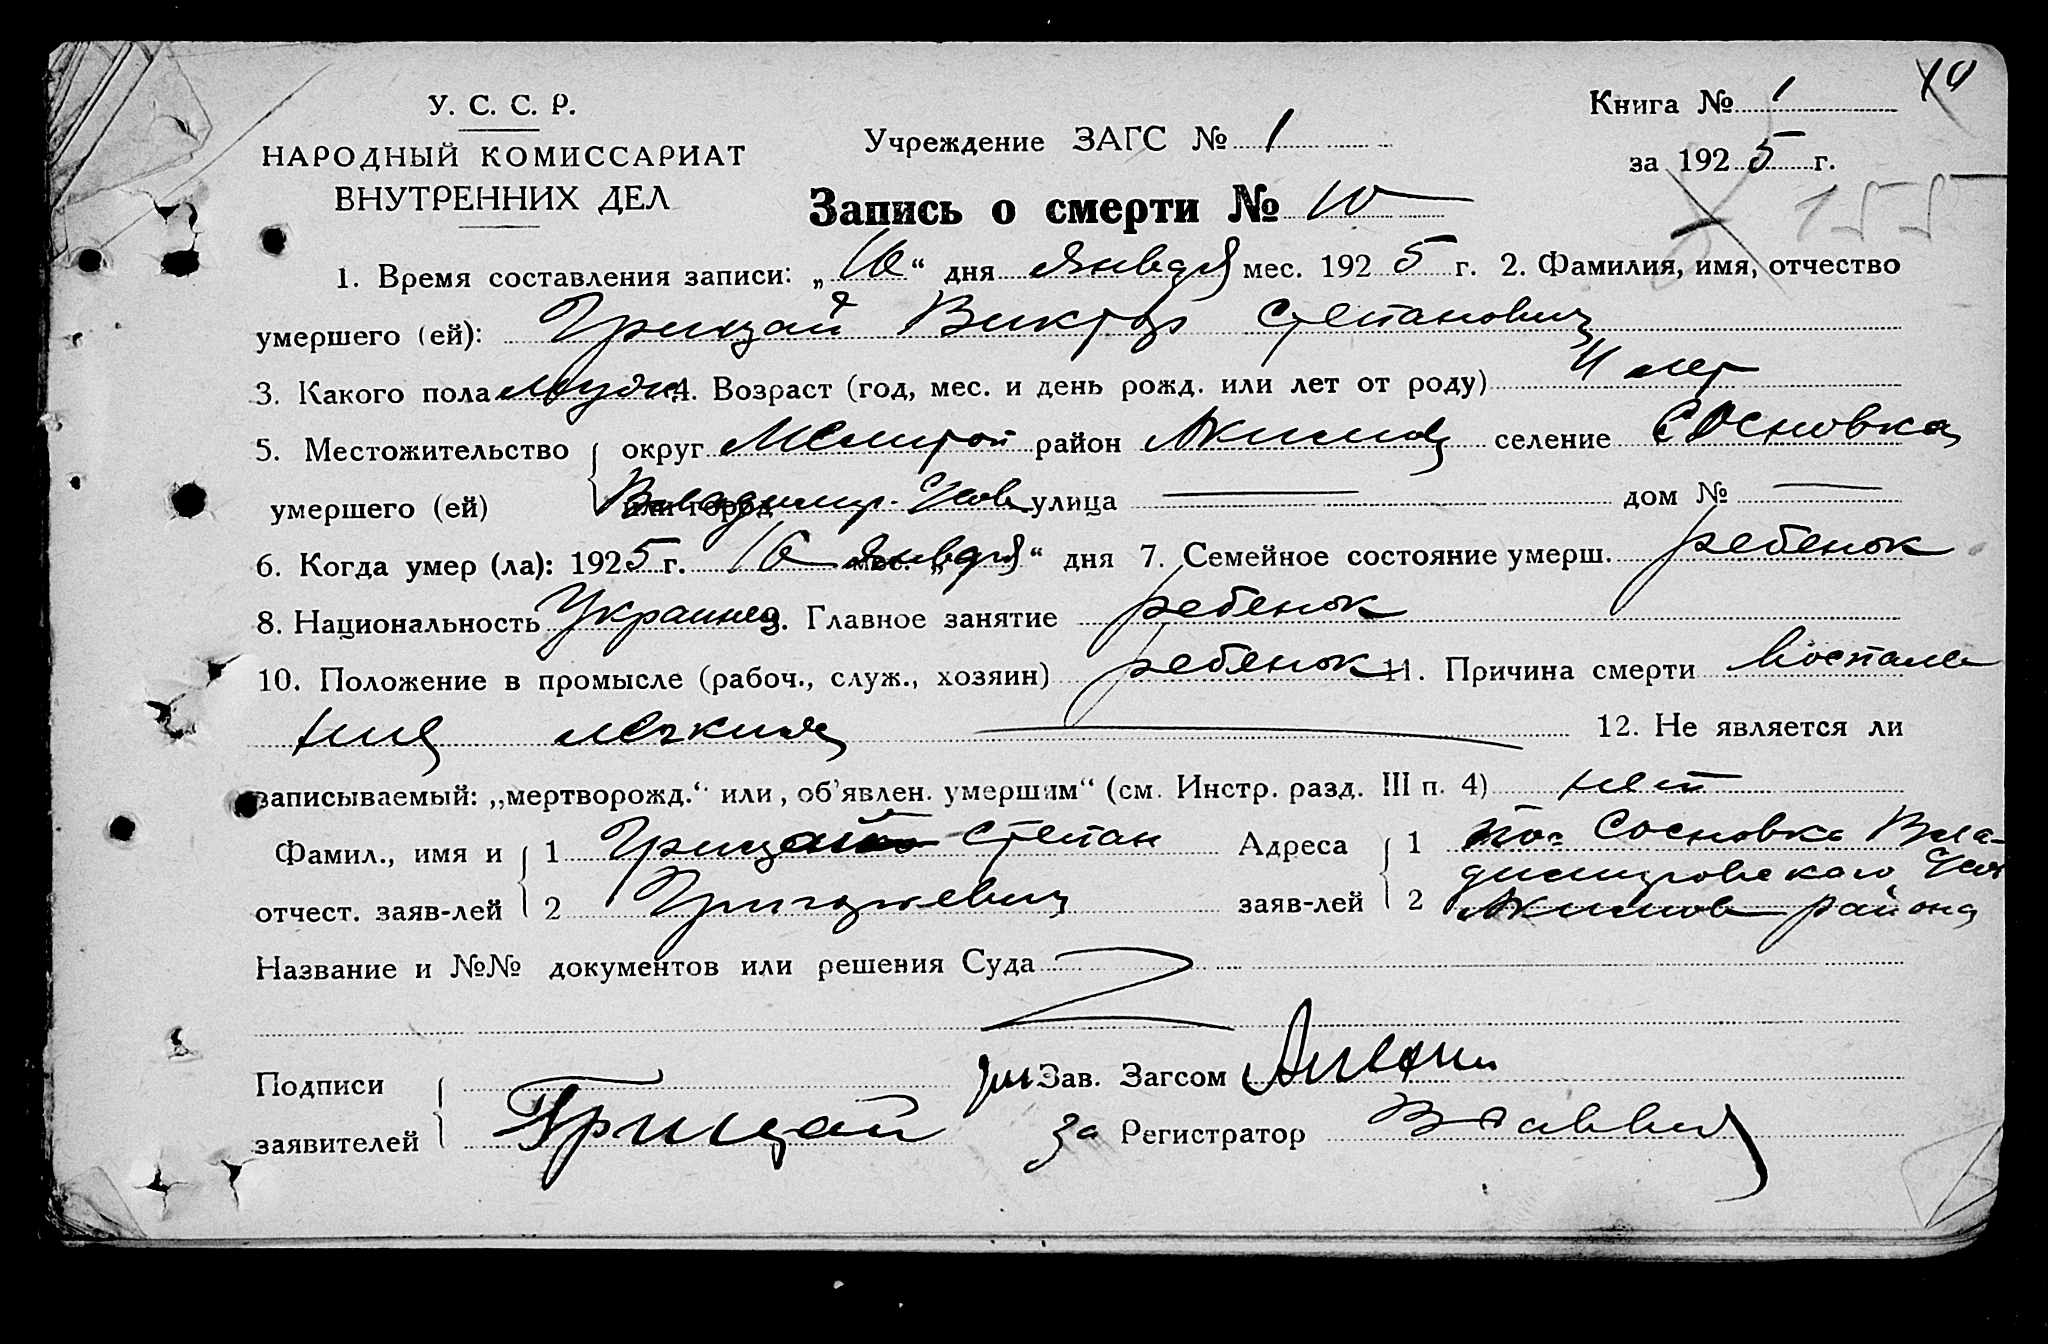 10
У. С. С. Р.
НАРОДНЫЙ КОМИССАРИАТ
ВНУТРЕННИХ ДЕЛ
Учреждение ЗАГС № 1
Книга № 1
за 1925 г.
155
Запись о смерти № 10
1. Время составления записи: „16“ дня января мес. 1925 г. 2. Фамилия, имя, отчество
умершего (ей): Грицай Виктор Степанович
3. Какого пола мужс. 4. Возраст (год, мес. и день рожд. или лет от роду) лет
5. Местожительство умершего (ей) округ Мелитоп район Акимов селение Сосновка
или город Владимир. улица — дом № —
6. Когда умер (ла): 1925 г. 16 января мес. „ “ дня 7. Семейное состояние умерш. ребенок
8. Национальность Украинец 9. Главное занятие ребенок
10. Положение в промысле (рабоч., служ., хозяин) ребенок 11. Причина смерти Воспале
ния легких 12. Не является ли
записываемый: „мертворожд.“ или „об’явлен. умершим“ (см. Инстр. разд. III п. 4) нет
Фамил., имя и отчест. заяв-лей 1 Грицай Степан
2 Григорьевич
Адреса заяв-лей 1 Сосновка Вла-
димировского
2 Акимов района
Название и №№ документов или решения Суда
Подписи заявителей Грицай
Зав. Загсом
за Регистратор